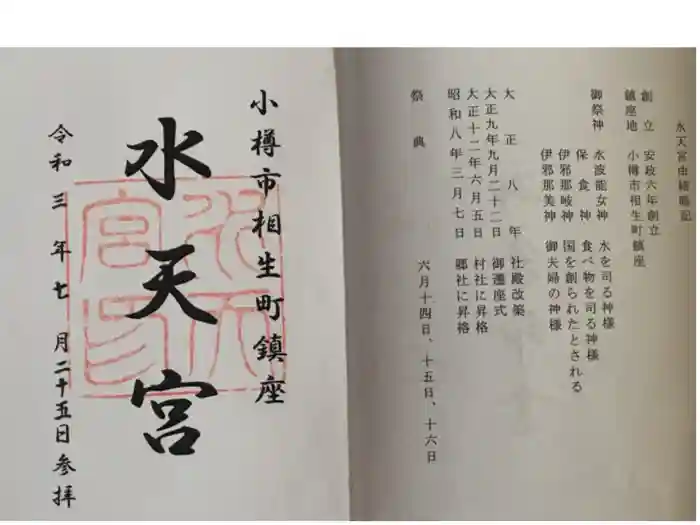 水天宮由緒略記
創立 安政六年創立
鎮座地 小樽市相生町鎮座
御祭神 水波能女神 水を司る神様
保食神 食べ物を司る神様
伊邪那岐神 国を創られたとされる
伊邪那美神 御夫婦の神様
大正八年 社殿改築
大正九年九月二十二日 御遷座式
大正十二年六月五日 村社に昇格
昭和八年三月七日 郷社に昇格
祭典 六月十四日、十五日、十六日
小樽市相生町鎮座
水天宮
令和三年七月二十五日参拝